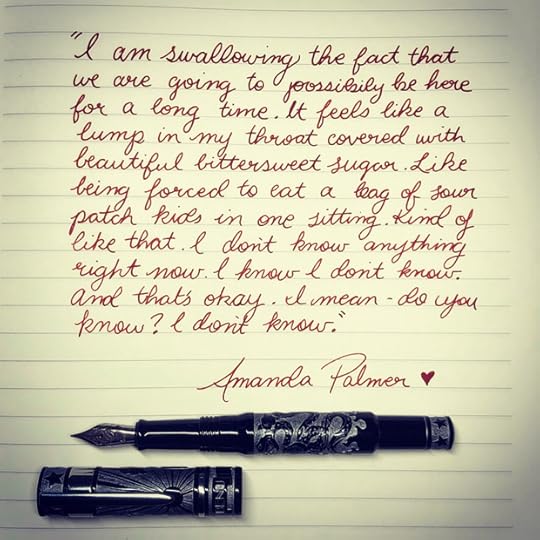 "I am swallowing the fact that
we are going to possibily be here
for a long time. It feels like a
lump in my throat covered with
beautiful bittersweet sugar. Like
being forced to eat a bag of sour
patch kids in one sitting. Kind of
like that. I don't know anything
right now. I know I don't know.
And that's okay. I mean - do you
know? I don't know."
Amanda Palmer ♥